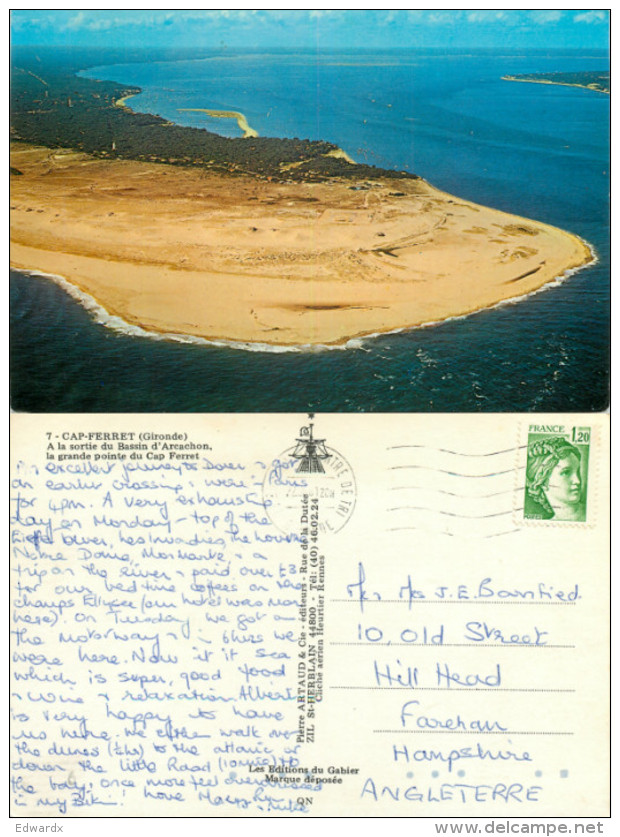 7 - CAP-FERRET (Gironde)
A la sortie du Bassin d'Arcachon,
la grande pointe du Cap Ferret
excellent journey to Dover & got
an earlier crossing & were in Paris
for 4pm. A very exhausting
day on Monday - top of the
Eiffel Tower, Les Invalides, the Louvre
Notre Dame, & a
trip on the River & paid over £3
for our bedtime coffees on the
Champs Elysee (our hotel was near
here). On Tuesday we got on
the motorway & in 6 hrs we
were here. Now it is sea
which is super, good food
& wine & relaxation. Albert
is very happy to have
us here. We either walk over
the dunes to the atlantic or
down the little Road to
the bay, once more feel
in my Bikini! Love
Pierre ARTAUD & Cie - éditeurs - Rue de la Dutée
ZIL St-HERBLAIN 44800 - Tél: (40) 46.02.24
Cliché aérien Heurtier Rennes
Les Editions du Gabier
Marque déposée
QN
FRANCE 1,20
POSTES
CENTRE DE TRI
Mr & Mrs J.E. Bansfied
10, Old Street
Hill Head
Fareham
Hampshire
ANGLETERRE
Edwardx
www.delcampe.net